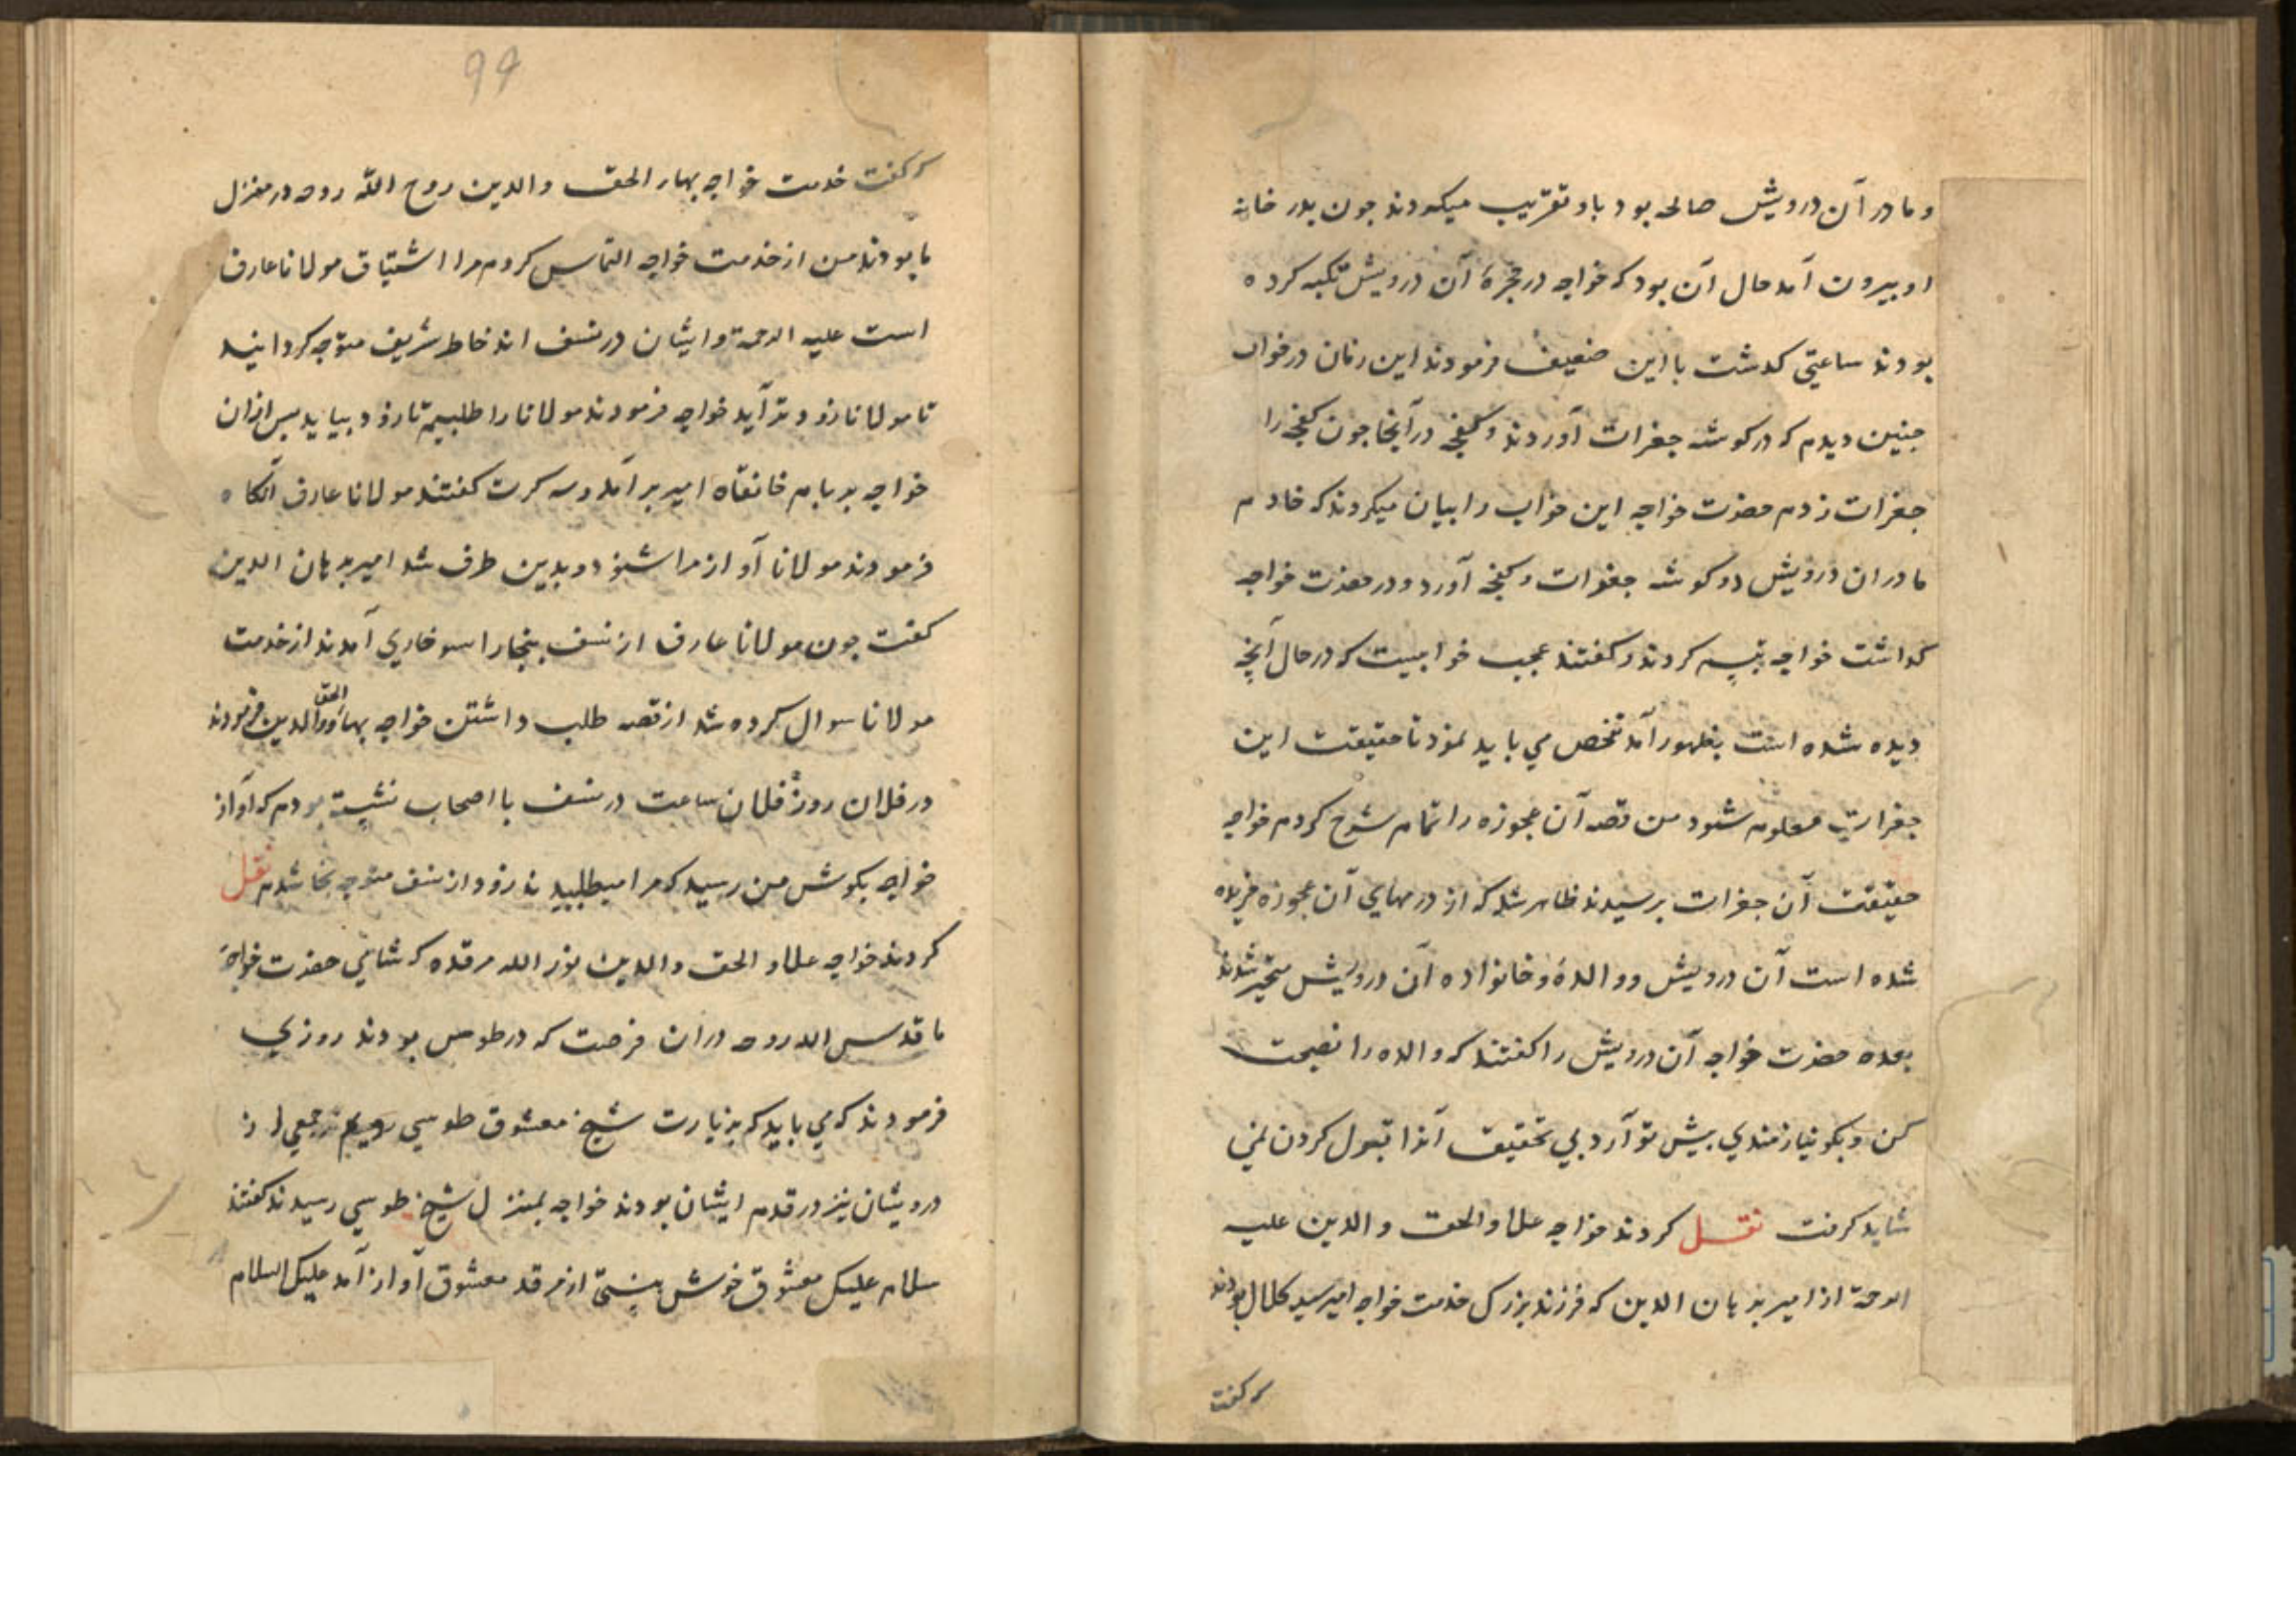 و مادر آن درویش صالحه بود باو تقریب میکردند جون بدر خانه
او بیرون آمد حال آن بود که خواجه در حجرهٔ آن درویش تکیه کرده
بودند ساعتی کدشت با این ضعیف فرمودند این زمان در خواب
جنین دیدم که در کوشه جغرات آوردند و کفجه در آنجا جون کفجه را
جغرات زدم حضرت خواجه این خواب را بیان میکردند که خادم
مادر ان درویش دو کوشه جغرات و کفجه آورد و در حضرت خواجه
کداشت خواجه تبسم کردند و کفتند عجب خوابیست که در حال آنجه
دیده شده است بظهور آمد تفحص می باید نمود تا حقیقت این
جغرات معلوم شود من قصه آن عجوزه را تمام شرح کردم خواجه
حقیقت آن جغرات برسیدند ظاهر شد که از درمهای آن عجوزه خریده
شده است آن درویش و والدهٔ و خانواده آن درویش متحیر شدند
بعده حضرت خواجه آن درویش را کفتند که والده را نصیحت
کن و بکو نیازمندی بیش تو آرد بی تحقیق آنرا قبول کردن نمی
شاید کرفت نقل کردند خواجه علاء الحق و الدین علیه
الرحمة از امیر برهان الدین که فرزند بزرک خدمت خواجه امیر سید کلال بودند
که کفت
99
که کفت خدمت خواجه بهاء الحق والدین روح الله روحه در منزل
ما بودند من از خدمت خواجه التماس کردم مرا اشتیاق مولانا عارف
است علیه الرحمة و ایشان در نسف اند خاطر شریف متوجه کردانید
تا مولانا زودتر آید خواجه فرمودند مولانا را طلبیم تا زود بیاید بس ازان
خواجه بر بام خانقاه امیر بر آمد و سه کرت کفتند مولانا عارف آنکاه
فرمودند مولانا آواز مرا شنود و بدین طرف شد امیر برهان الدین
کفت جون مولانا عارف از نسف ببخارا سوخاری آمدند از خدمت
مولانا سوال کرده شد از قصه طلب داشتن خواجه بهاء الحق والدین فرمودند
در فلان روز فلان ساعت در نسف با اصحاب نشسته بودم که آواز
خواجه بکوش من رسید که مرا میطلبید ند زود از نسف متوجه بخارا شدم نقل
کردند خواجه علاء الحق والدین نور الله مرقده که شنیدم حضرت خواجهٔ
ما قدس الله روحه دران فرصت که در طوس بودند روزی
فرمودند که می باید که بزیارت شیخ معشوق طوسی رویم جمعی از
درویشان نیز در قدم ایشان بودند خواجه بمنزل شیخ طوسی رسیدند کفتند
سلام علیک معشوق خوش هستی از مرقد معشوق آواز آمد علیک السلام